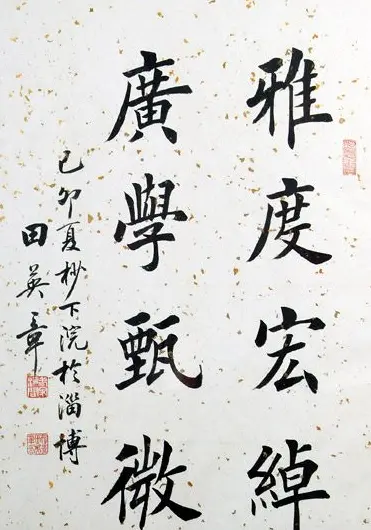 雅度宏綽
廣學甄微
己卯夏杪下浣於淄博
田英章